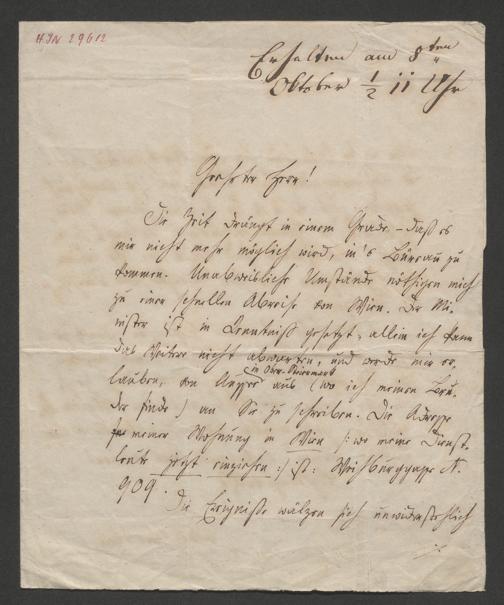 HIN 29612
Erhalten am 8ten
Oktober ½ 11 Uhr
Geehrter Herr!
Die Zeit drängt in einem Grade, – daß es
mir nicht mehr möglich wird, in's Büreau zu
kommen. Unabweisliche Umstände nöthigen mich
zu einer schnellen Abreise von Wien. Der Mi-
nister ist in Kenntniß gesetzt, allein ich kann
das Weitere nicht abwarten, und werde mir er-
in Ober-Steiermark
lauben, von aus (wo ich meinen Bru-
der finde) an Sie zu schreiben. Die Adresse
meiner Wohnung in Wien /: wo meine Dienst-
leute jetzt einziehen :/ ist: Weihburggasse N.
909.
Die Ereignisse wälzen sich unwiderstehlich